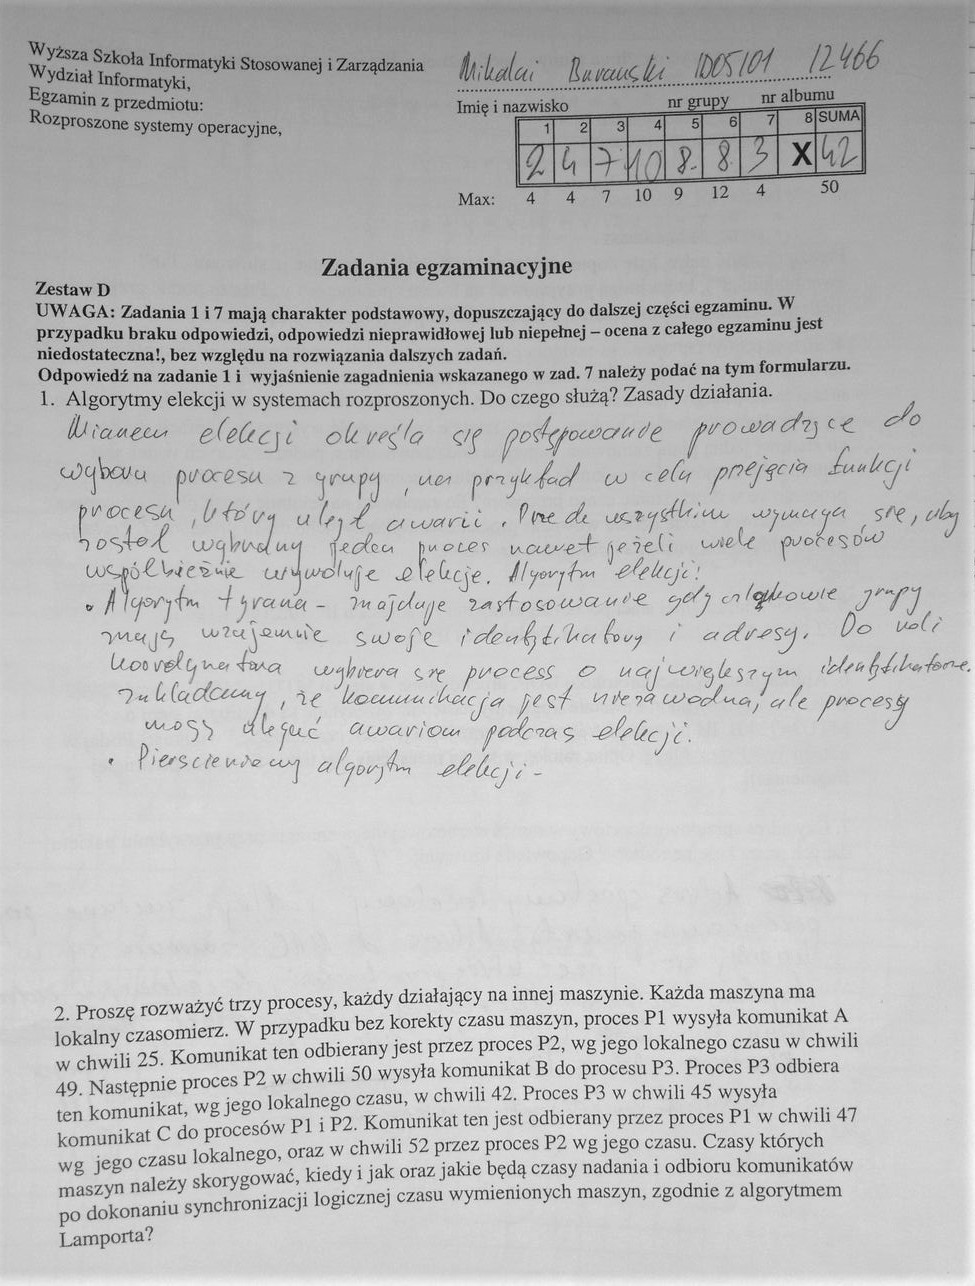 Wyższa Szkoła Informatyki Stosowanej i Zarządzania
Wydział Informatyki,
Egzamin z przedmiotu:
Rozproszone systemy operacyjne,
Mikalai Buraus ki ID05/01 12466
Imię i nazwisko nr grupy nr albumu
1 2 3 4 5 6 7 8 SUMA
2 4 7 10 8 8 3 X 42
Max: 4 4 7 10 9 12 4 50
Zadania egzaminacyjne
Zestaw D
UWAGA: Zadania 1 i 7 mają charakter podstawowy, dopuszczający do dalszej części egzaminu. W
przypadku braku odpowiedzi, odpowiedzi nieprawidłowej lub niepełnej – ocena z całego egzaminu jest
niedostateczna!, bez względu na rozwiązania dalszych zadań.
Odpowiedź na zadanie 1 i wyjaśnienie zagadnienia wskazanego w zad. 7 należy podać na tym formularzu.
1. Algorytmy elekcji w systemach rozproszonych. Do czego służą? Zasady działania.
Mianem elekcji określa się postępowanie prowadzące do
wyboru procesu z grupy, na przykład w celu przejęcia funkcji
procesu, który uległ awarii. Przede wszystkim wymaga się, aby
został wybrany jeden proces nawet jeżeli wiele procesów
współbieżnie wywołuje elekcje. Algorytm elekcji:
• Algorytm tyrana - znajduje zastosowanie gdy członkowie grupy
znają wzajemnie swoje identyfikatory i adresy. Do roli
koordynatora wybiera się process o największym identyfikatorze.
Zakładamy, że komunikacja jest niezawodna, ale procesy
mogą ulegać awariom podczas elekcji.
• Pierscieniowy algorytm elekcji -
2. Proszę rozważyć trzy procesy, każdy działający na innej maszynie. Każda maszyna ma
lokalny czasomierz. W przypadku bez korekty czasu maszyn, proces P1 wysyła komunikat A
w chwili 25. Komunikat ten odbierany jest przez proces P2, wg jego lokalnego czasu w chwili
49. Następnie proces P2 w chwili 50 wysyła komunikat B do procesu P3. Proces P3 odbiera
ten komunikat, wg jego lokalnego czasu, w chwili 42. Proces P3 w chwili 45 wysyła
komunikat C do procesów P1 i P2. Komunikat ten jest odbierany przez proces P1 w chwili 47
wg jego czasu lokalnego, oraz w chwili 52 przez proces P2 wg jego czasu. Czasy których
maszyn należy skorygować, kiedy i jak oraz jakie będą czasy nadania i odbioru komunikatów
po dokonaniu synchronizacji logicznej czasu wymienionych maszyn, zgodnie z algorytmem
Lamporta?